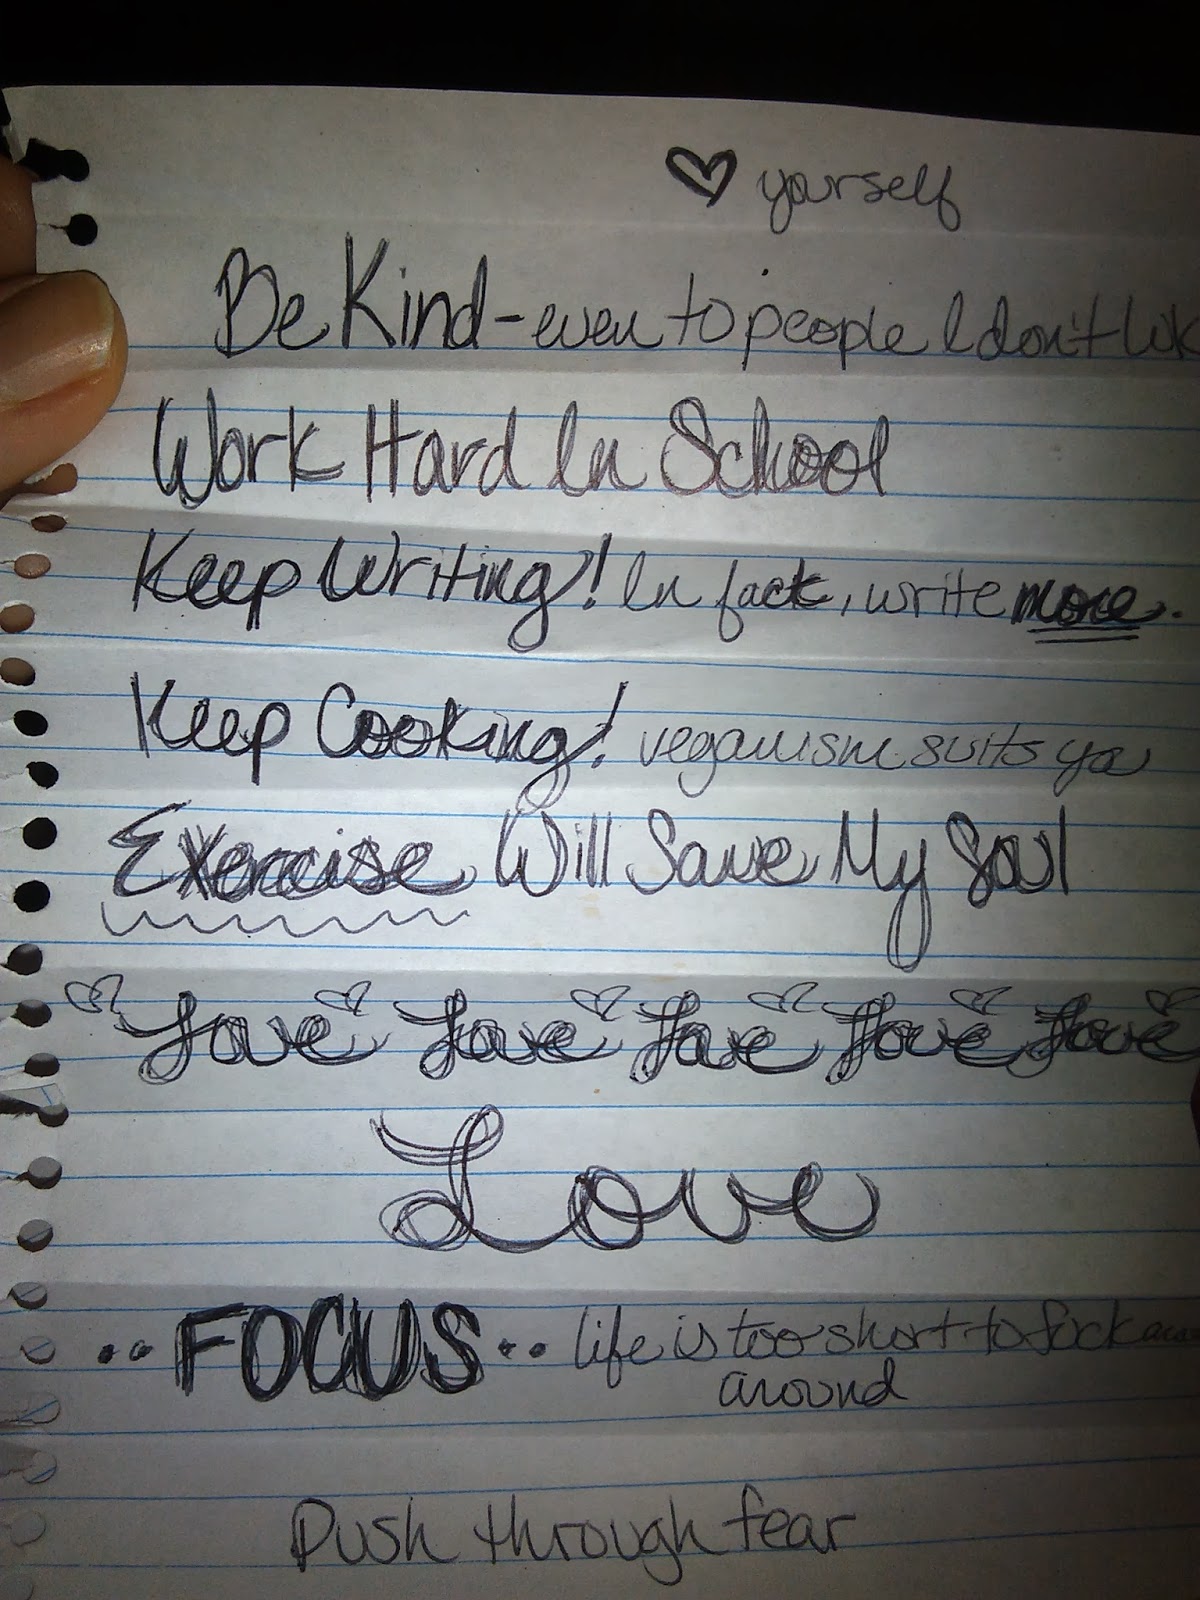 ♡ yourself
Be Kind - even to people I don't lik
Work Hard In School
Keep Writing! In fact, write more.
Keep Cooking! veganism suits ya
Exercise Will Save My Soul
Love Love Love Love Love
Love
..FOCUS.. life is too short to fuck
around
Push through fear